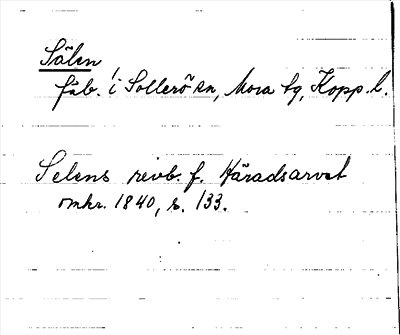 Sälen
fäb. i Sollerö sn, Mora tg, Kopp. l.
Selens revb. f. Häradsarvet
omkr. 1840, s. 133.